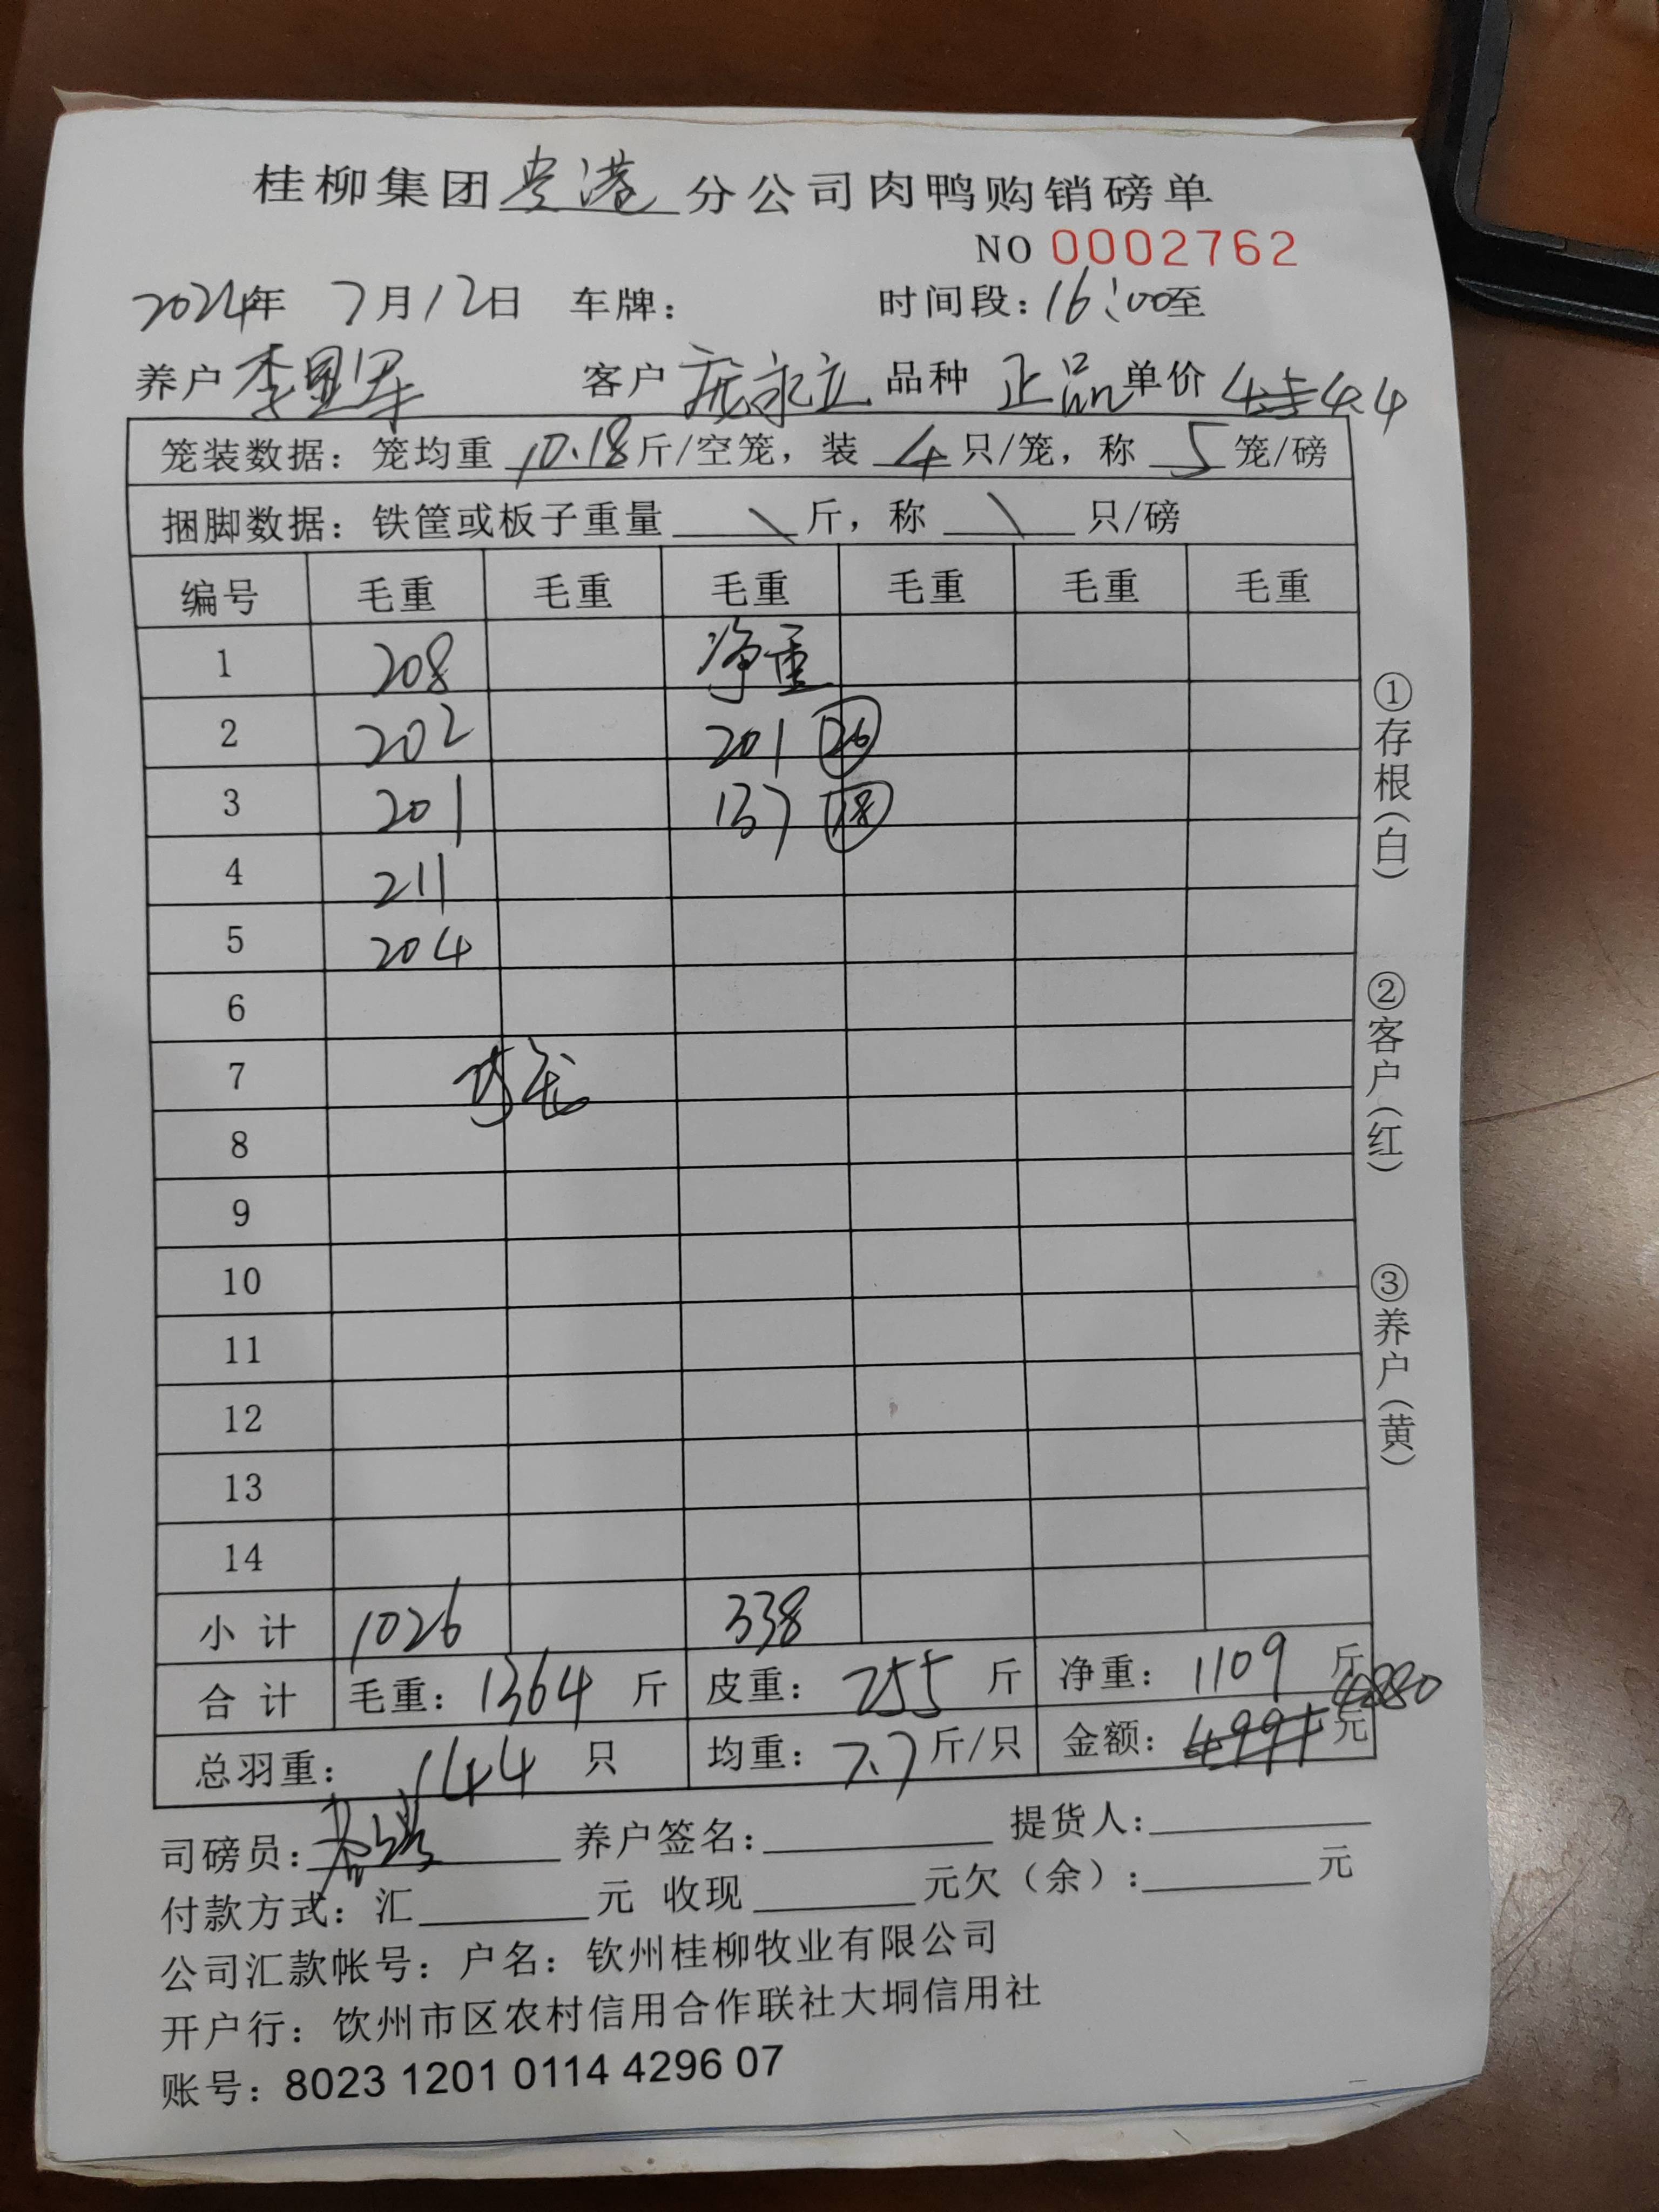 桂柳集团贵港分公司肉鸭购销磅单
NO 0002762
2024年 7月12日 车牌： 时间段：16:00至
养户 李显军 客户 庞永立 品种 正品 单价 4.5 4.4
笼装数据：笼均重 10.18 斤/空笼，装 4 只/笼，称 5 笼/磅
捆脚数据：铁筐或板子重量 \ 斤，称 \ 只/磅
编号 毛重 毛重 毛重 毛重 毛重 毛重
1 208 净重
2 202 201 26
3 201 137 18
4 211
5 204
6
7
8
9
10
11
12
13
14
小计 1026 338
合计 毛重：1364 斤 皮重：255 斤 净重：1109 斤
总羽重：144 只 均重：7.7 斤/只 金额：4991 元 4880
司磅员： 养户签名： 提货人：
付款方式：汇 元 收现 元欠（余）： 元
公司汇款帐号：户名：钦州桂柳牧业有限公司
开户行：钦州市区农村信用合作联社大垌信用社
账号：8023 1201 0114 4296 07
①存根（白）
②客户（红）
③养户（黄）